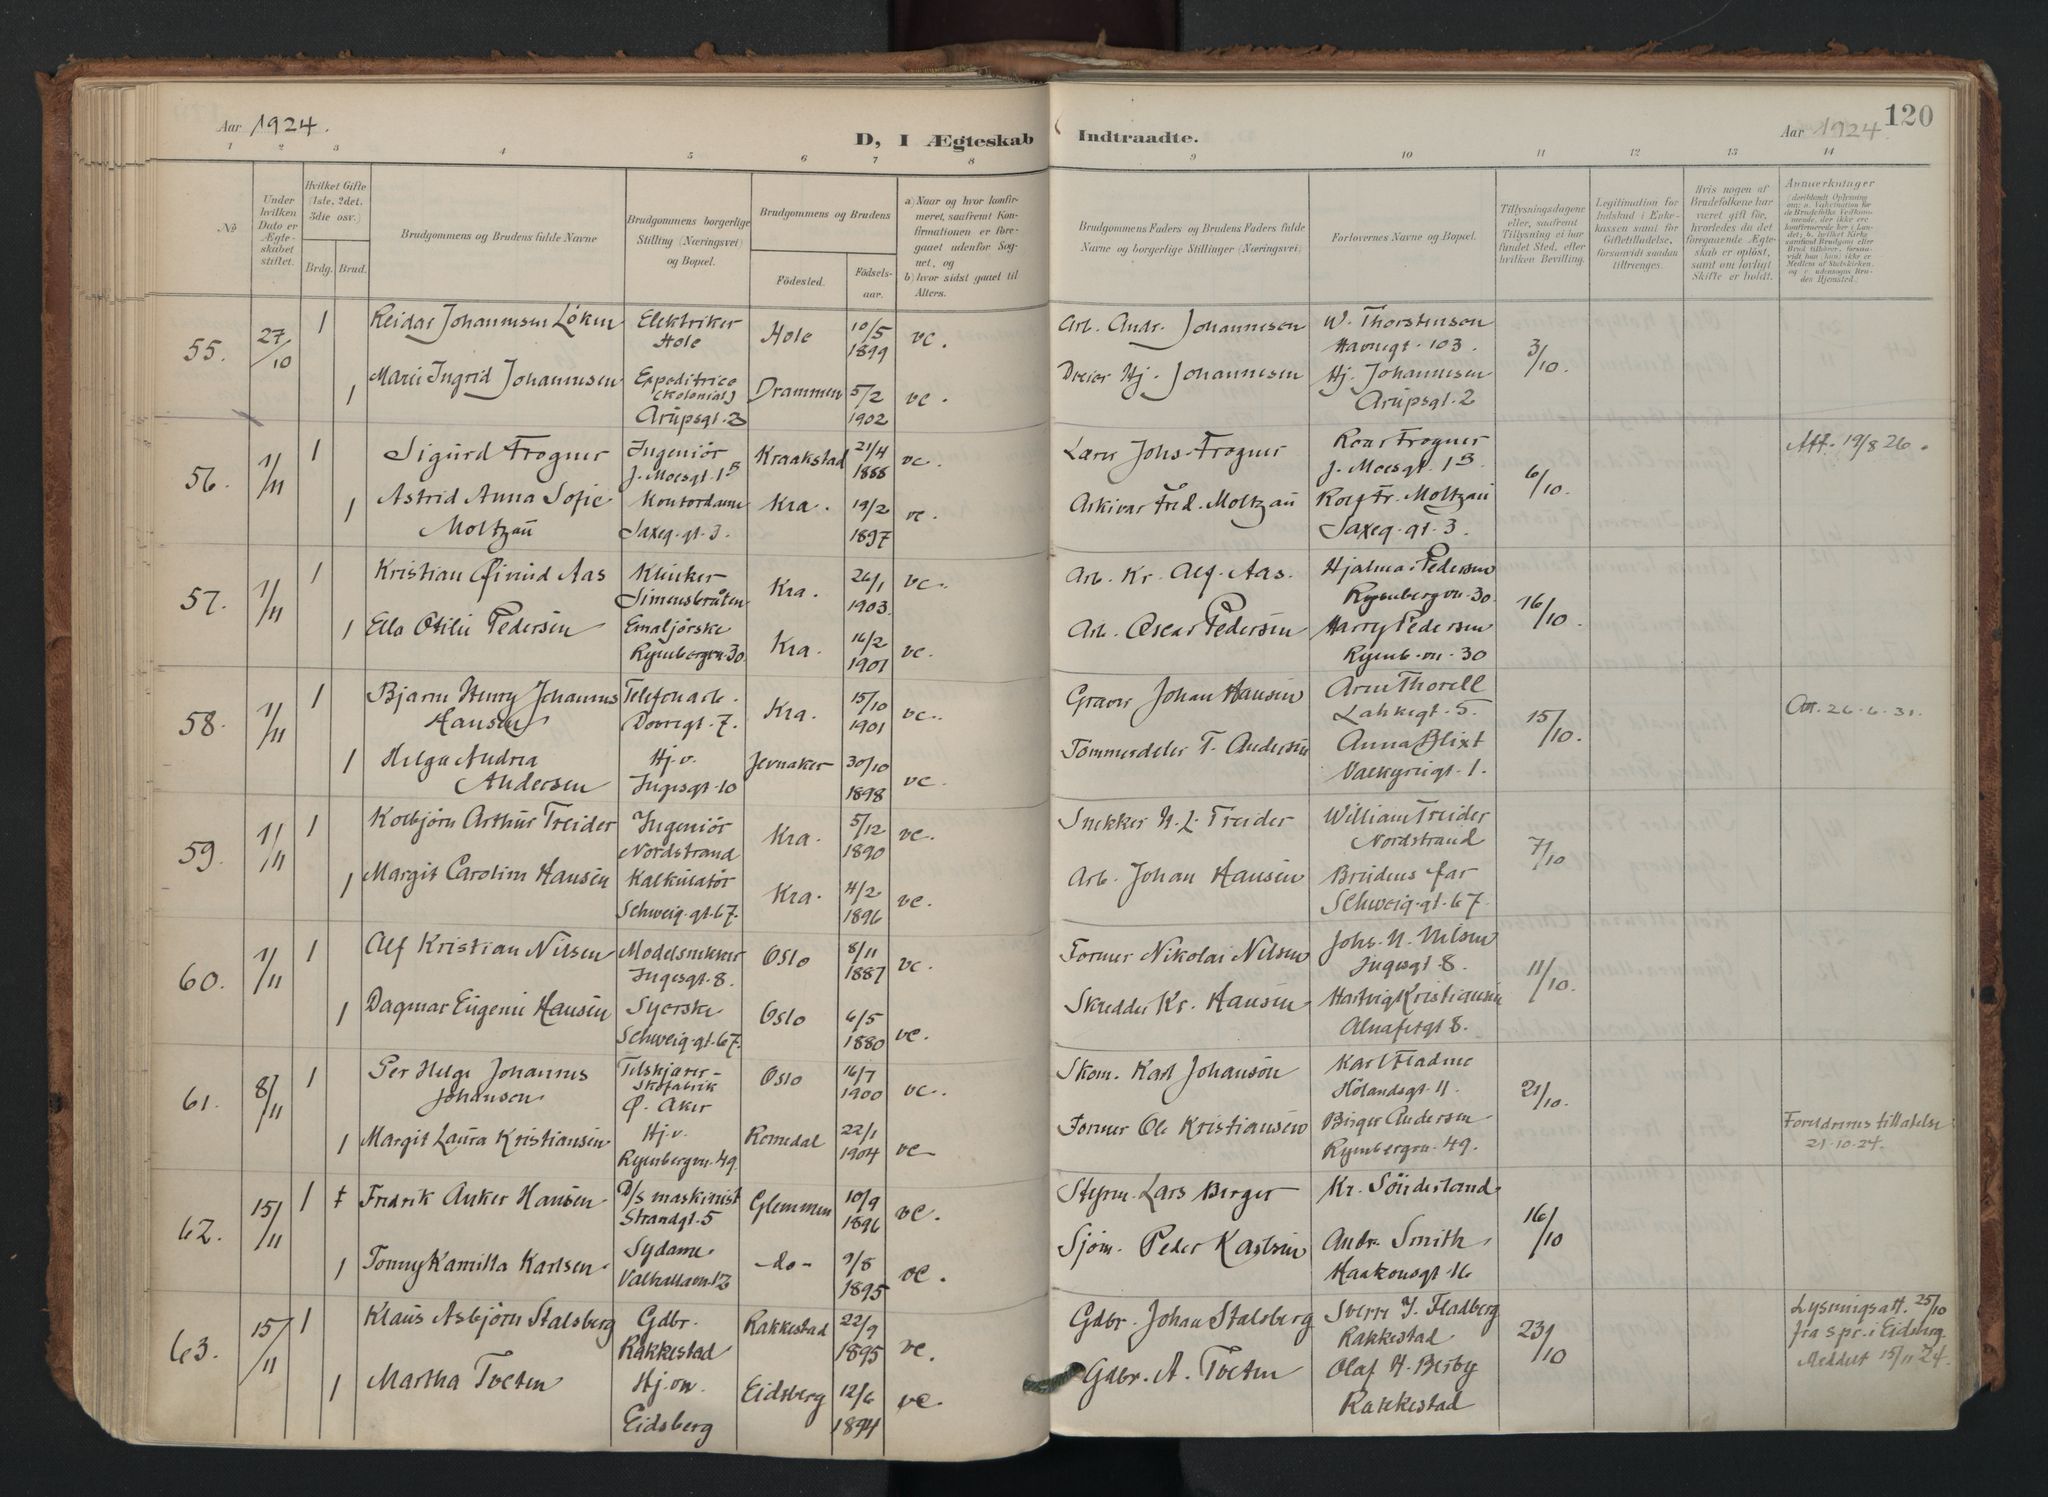 Aar 1924.
D, I Ægteskab Indtraadte.
Aar 1924
120
1 2 3 4 5 6 7 8 9 10 11 12 13 14
No
Under hvilken Dato er Ægteskabet stiftet.
Hvilket Gifte (1ste, 2det, 3die osv.)
Brdg. Brud.
Brudgommens og Brudens fulde Navne
Brudgommens borgerlige Stilling (Næringsvei) og Bopæl.
Brudgommens og Brudens
Födested. Födselsaar.
a) Naar og hvor konfirmeret, saafremt Konfirmationen er foregaaet udenfor Sognet, og
b) hvor sidst gaaet til Alters.
Brudgommens Faders og Brudens Faders fulde Navne og borgerlige Stillinger (Næringsvei).
Forlovernes Navne og Bopæl.
Tillysningsdagene eller, saafremt Tillysning ei har fundet Sted, efter hvilken Bevilling.
Legitimation for Indskud i Enkekassen samt for Giftetilladelse, forsaavidt saadan tiltrænges.
Hvis nogen af Brudefolkene har været gift för, hvorledes da det foregaaende Ægteskab er oplöst, samt om lovligt Skifte er holdt.
Anmerkninger
55. 27/10 1 Reidar Johannesen Löken Elektriker Hole Hole 10/5 1899 vc. Arb. Andr. Johannesen W. Thorstensen Havnegt. 103. 3/10.
1 Marie Ingrid Johannesen Expeditrice (Kolonial) Arupsgt. 2 Drammen 5/2 1902 vc. Dreier Hj. Johannesen Hj. Johannesen Arupsgt. 2
56. 1/11 1 Sigurd Frogner Ingeniör J. Moesgt. 1B Kraakstad 21/4 1888 vc. Lars Johs. Frogner Roar Frogner J. Moesgt. 1B. 6/10. Att. 19/8 26.
1 Astrid Anna Sofie Moltzau Kontordame Saxeg.gt. 3. Kra. 19/2 1897 vc. Arkivar Fred. Moltzau Rolf Fr. Moltzau Saxeg. gt. 3.
57. 1/11 1 Kristian Øivind Aas Klinker Simensbråten Kra. 26/1 1903. vc. Arb. Kr. Alf. Aas. Hjalmar Pedersen Rynbergvn. 30. 16/10.
1 Ella Otilie Pedersen Emaljörske Rynbergvn. 30. Kra. 16/2 1901 vc. Arb. Oscar Pedersen Harry Pedersen Rynb. vn. 30
58. 1/11 1 Bjarne Henry Johannes Hansen Telefonarb. Dovregt. 7. Kra. 15/10 1901 vc. Graver Johan Hansen Arne Thorell Lakkegt. 5. 15/10. Att. 26.6.31.
1 Helga Andrea Andersen Hj.v. Ingesgt. 10 Jevnaker 30/10 1898 vc. Tömmerdeler T. Andersen Anna Blixt Valkyriegt. 1.
59. 1/11 1 Kolbjörn Arthur Treider Ingeniör Nordstrand Kra. 5/12 1890 vc. Snekker H. L. Treider William Treider Nordstrand 7/10
1 Margit Caroline Hansen Kalkulatør Schweig.gt. 67. Kra. 4/2 1896 vc. Arb. Johan Hansen Brudens far Schweig.gt. 67.
60. 1/11 1 Alf Kristian Nilsen Modelsnekker Ingesgt. 8. Oslo 8/11 1887 vc. Former Nikolai Nilsen Johs. N. Nilsen Ingesgt. 8. 11/10.
1 Dagmar Eugenie Hansen Syerske Schweig.gt. 67. Oslo 6/5 1880 vc. Skredder Kr. Hansen Hartvig Kristiansen Alnafetgt 8.
61. 8/11 1 Per Helge Johannes Johansen Tilskjærer- Skofabrik Ø. Aker Oslo 16/7 1900 vc. Skom. Karl Johanson Karl Fladmo Hölandsgt. 11. 21/10.
1 Margit Laura Kristiansen Hj.v. Rynbergvn. 49. Romedal 22/1 1904 vc Former Ole Kristiansen Birger Andersen Rynbergvn. 49. Foreldrenes tillatelse 21.10.24.
62. 15/11 1 Fredrik Anker Hansen D/S maskinist Strandgt. 5 Glemmen 10/9 1896 vc. Styrm. Lars Berger Kr. Sönderland 16/10
1 Tonny Kamilla Karlsen Sydame. Valhallavn. 12 -do- 9/8 1895 vc. Sjöm. Peder Karlsen Andr. Smith Haakonsgt. 16
63. 15/11 1 Klaus Asbjörn Stalsberg Gdbr. Rakkestad Rakkestad 22/9 1895 vc. Gdbr. Johan Stalsberg Sverre J. Fladberg Rakkestad 23/10 Lysningsatt. 25/10 fra spr. i Eidsberg. Meddelt 15/11 24.
1 Martha Tveten Hj. Eidsberg Eidsberg 12/6 1894 vc. Gdbr. A. Tveten Olaf H. Besby Rakkestad